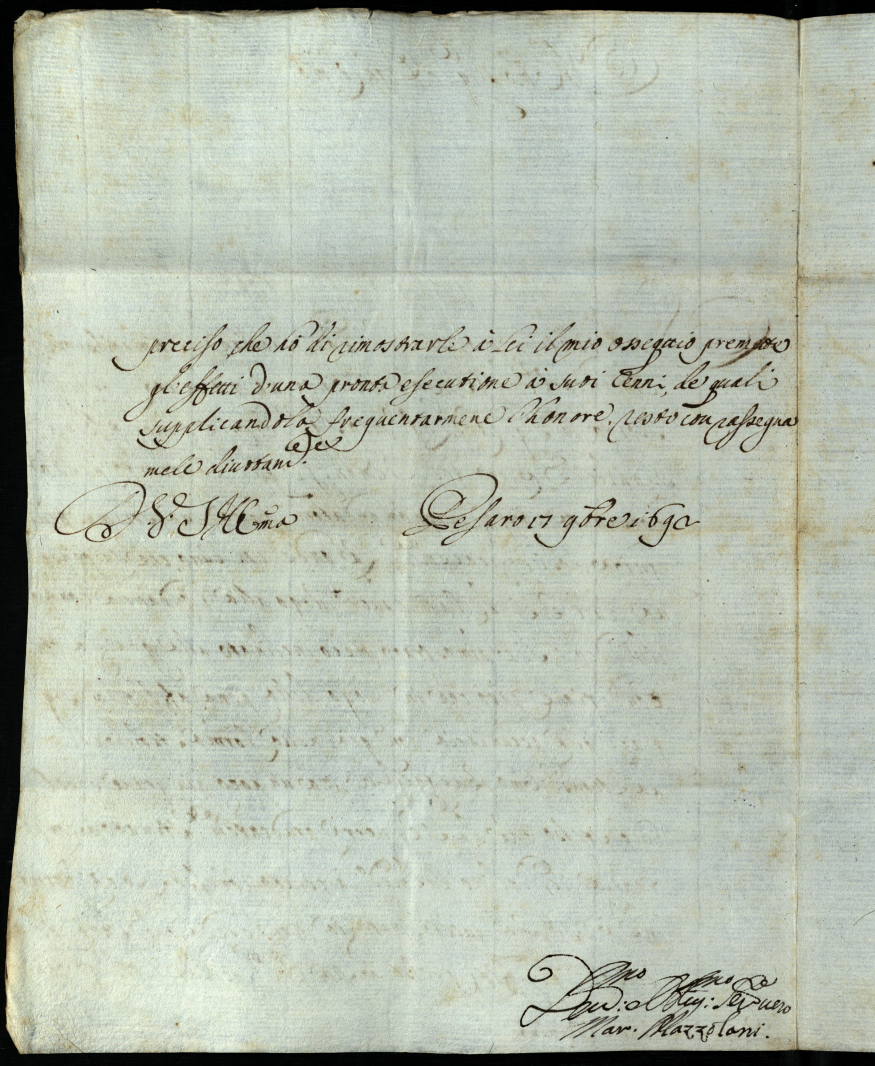 preciso che hò di rimostrarle à Lei il mio ossequio
gl'effetti d'una pronta esecutione à suoi Cenni, de quali
supplicandola frequentarmene l'honore. resto con rassegna
mele
D V. S. Ill.ma Pesaro 17 9bre 169
Mar. Mazzolani.